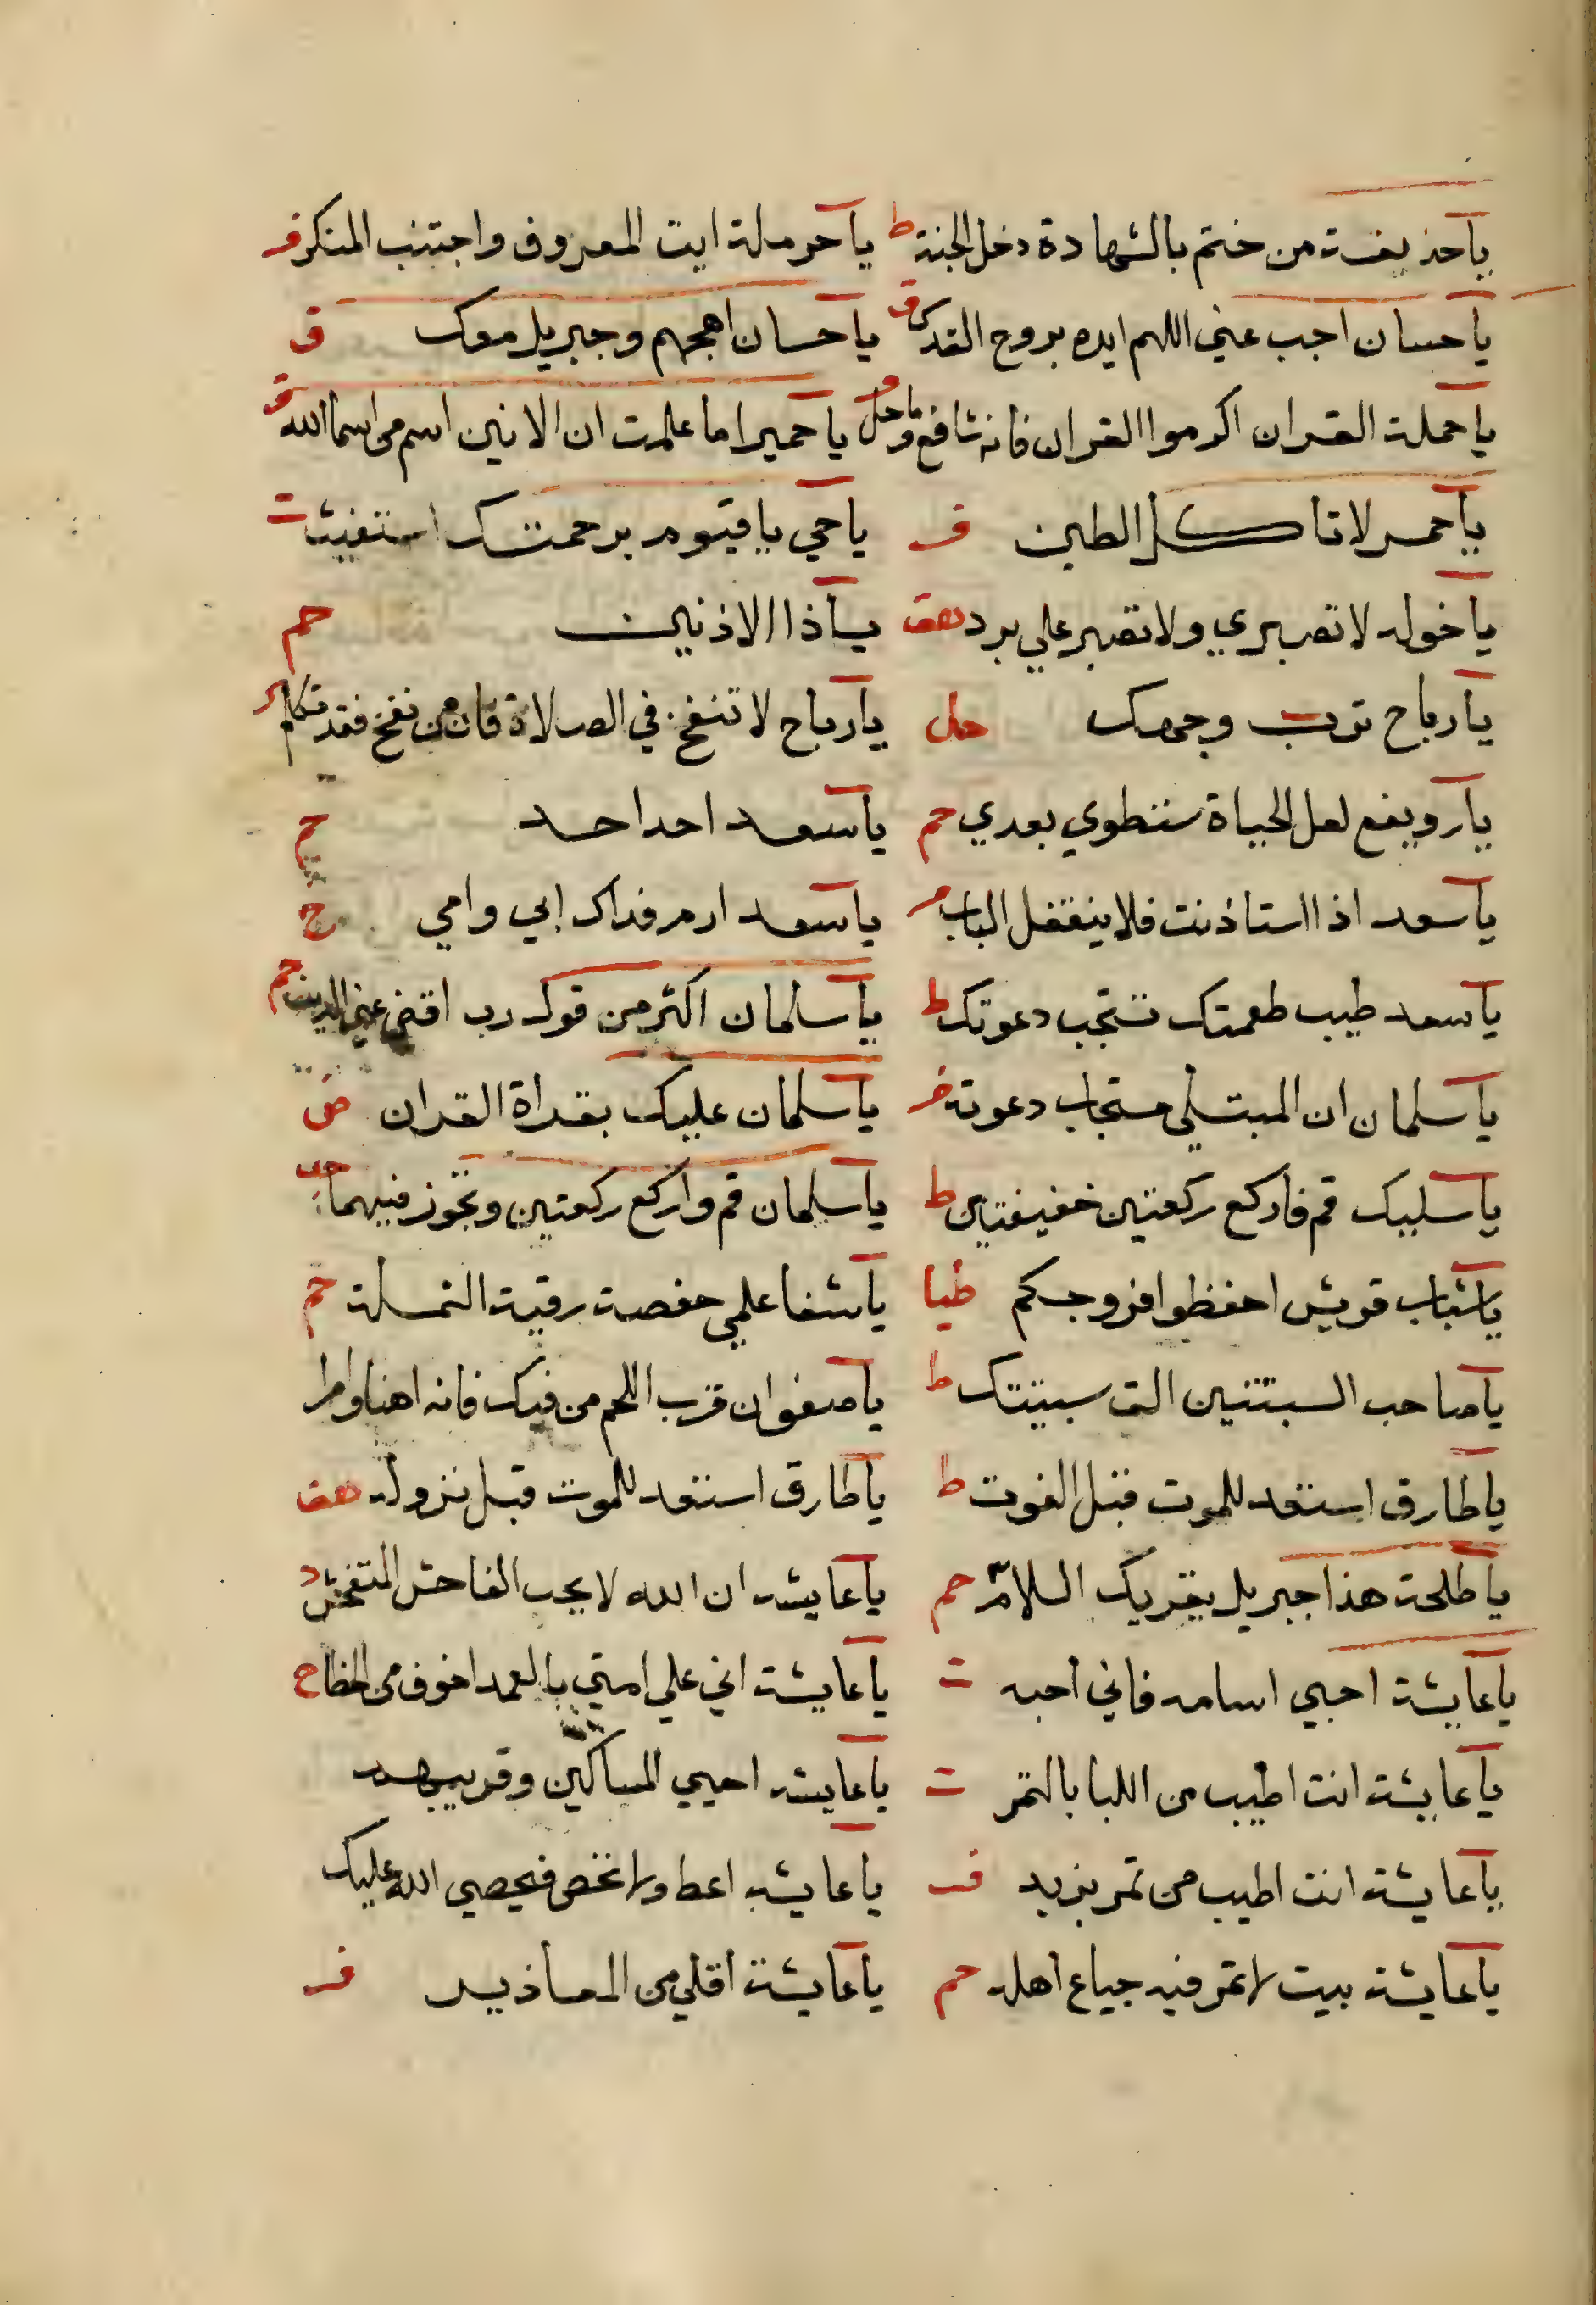 ياحذيفة من ختم بالشهادة دخل الجنة ط ياحرملة ايت المعروف واجتنب المنكر فر
ياحسان اجب عني اللهم ايده بروح القدس ق ياحسان اهجهم وجبريل معك ق
ياحملة القران اكرموا القران فانه شافع وماحل ياحميرا ما علمت ان الانين اسم من اسما الله
ياحمر لا تاكل الطين فر ياحي ياقيوم برحمتك استغيث ت
ياخوله لا تصبري ولا تصبر علي برد هق ياذا الاذنين حم
يارباح ترب وجهك حل يارباح لا تنفخ في الصلاة فان من نفخ فقد تكلم
يارويفع لعل الحياة ستطوي بعدي حم ياسعد احد احد حم
ياسعد اذا استاذنت فلا ينقفل الباب ياسعد ارم فداك ابي وامي ح
ياسعد طيب طعمتك تستجب دعوتك ط ياسلمان اكثر من قول رب اقض عني الدين حم
ياسلمان ان المبتلي مستجاب دعوته فر ياسلمان عليك بقراة القران
ياسليك قم فاركع ركعتين خفيفتين ط ياسليمان قم واركع ركعتين وتجوز فيهما
ياشباب قريش احفظوا فروجكم طيا ياشفا علمي حفصة رقية النملة حم
ياصاحب السبتتين الق سبتيتك ط ياصفوان قرب اللحم من فيك فانه اهنا وامرا
ياطارق استعد للموت قبل الفوت ط ياطارق استعد للموت قبل نزوله هق
ياطلحة هذا جبريل يقريك السلام حم ياعايشه ان الله لا يحب الفاحش المتفحش د
ياعايشة احبي اسامه فاني احبه ت ياعايشة اني علي امتي بالعمد اخوف من الخطا ح
ياعايشة انت اطيب من اللبا بالتمر ت ياعايشه احبي المساكين وقربيهم
ياعايشة انت اطيب من تمر بزبد فر ياعايشه اعط ولا تحص فيحصي الله عليك
ياعايشة بيت لا تمر فيه جياع اهله حم ياعايشة اقلي من المعاذير فر